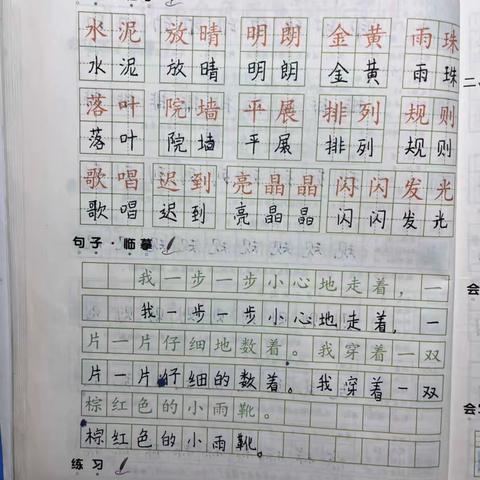 水泥 放晴 明朗 金黄 雨珠
水泥 放晴 明朗 金黄 雨珠
落叶 院墙 平展 排列 规则
落叶 院墙 平展 排列 规则
歌唱 迟到 亮晶晶 闪闪发光
歌唱 迟到 亮晶晶 闪闪发光
句子·临摹
我一步一步小心地走着，一
我一步一步小心地走着，一
片一片仔细地数着。我穿着一双
片一片仔细的数着。我穿着一双
棕红色的小雨靴。
棕红色的小雨靴。
练习
二、
会
会